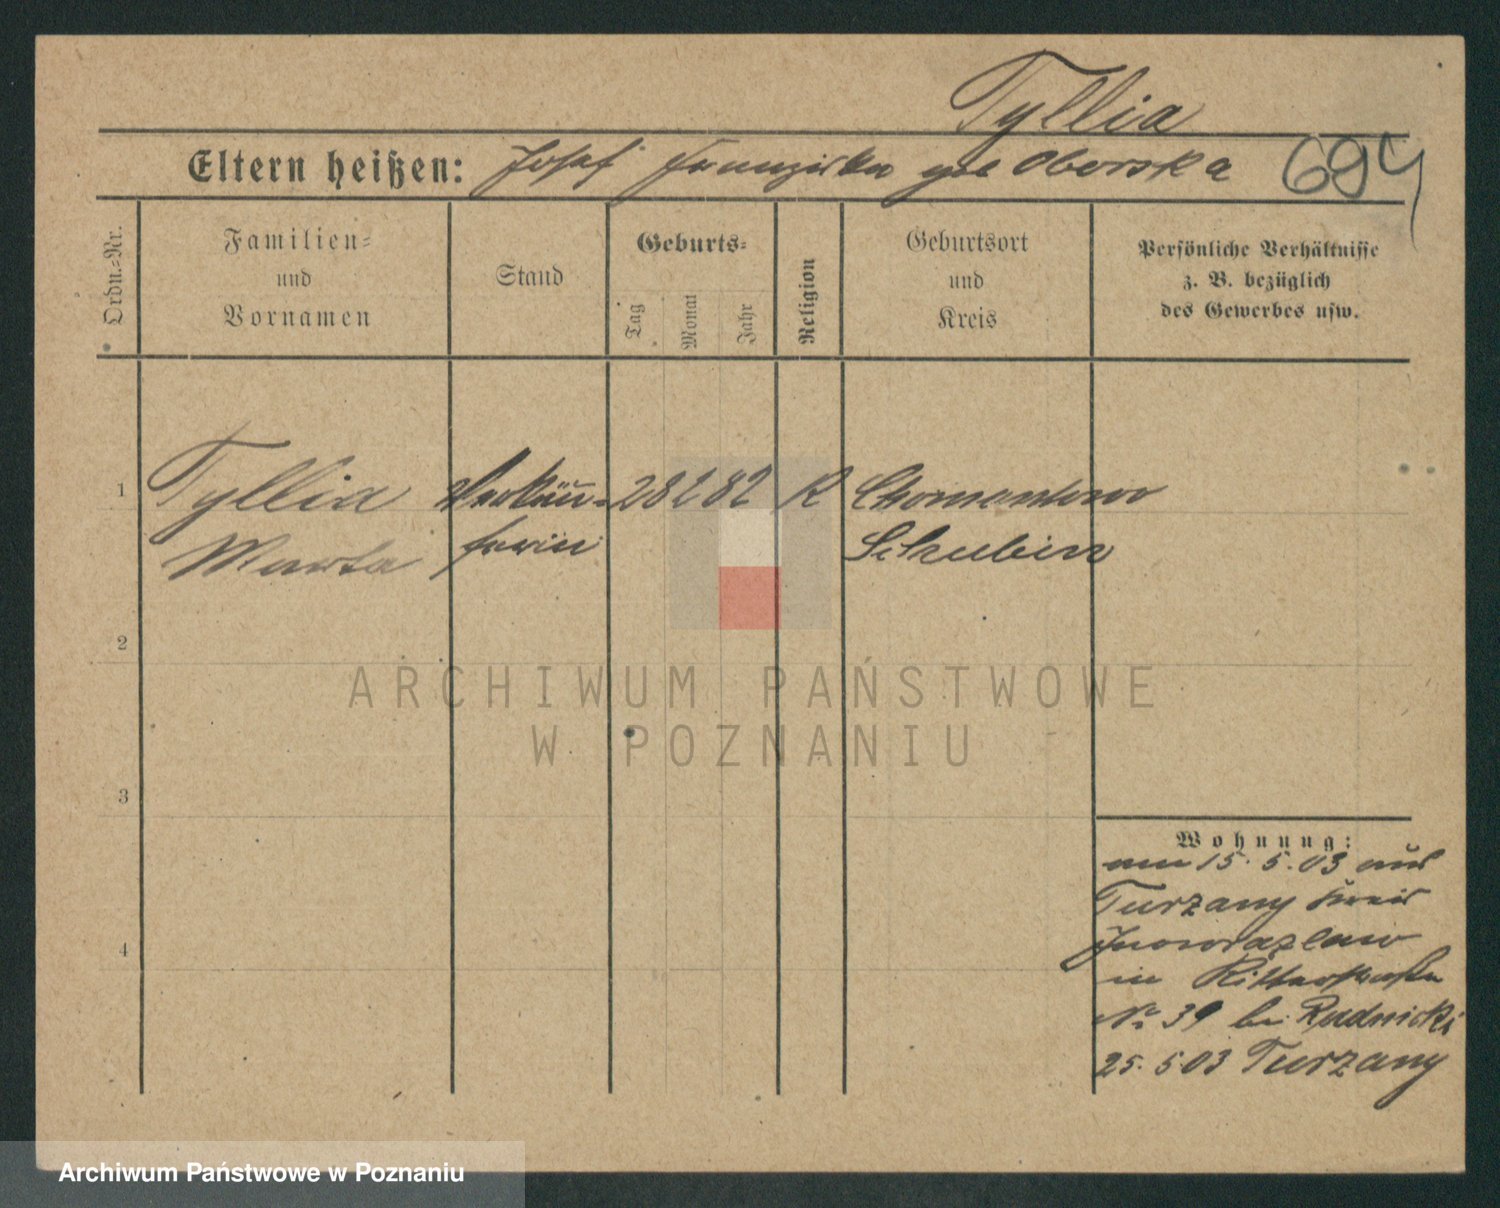 Tyllia
Eltern heißen: Josef Franziska geb Oborska
694
Ordn.=Nr.
Familien=
und
Vornamen
Stand
Geburts=
Tag
Monat
Jahr
Religion
Geburtsort
und
Kreis
Persönliche Verhältnisse
z. B. bezüglich
des Gewerbes usw.
1 Tyllia Verkäu= 28 2 82 R Chomentowo
Marta ferin Schubin
2
3
4
Wohnung:
am 15. 5. 03 aus
Turzany Kreis
Inowrazlaw
in Ritterstraße
No 39 bei Rudnicki
25. 5 03 Turzany
ARCHIWUM PAŃSTWOWE
W POZNANIU
Archiwum Państwowe w Poznaniu